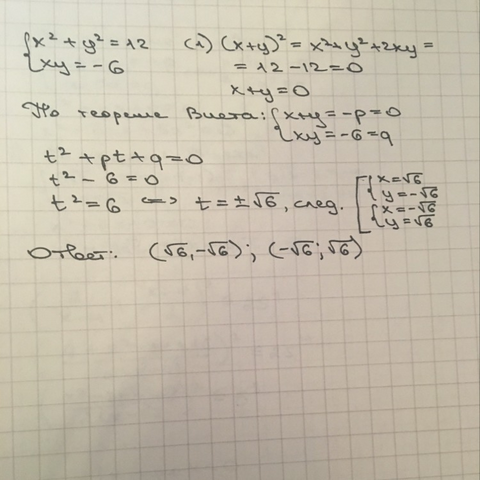 {x² + y² = 12 (1) (x+y)² = x²+y²+2xy =
{xy = -6 = 12 - 12 = 0
x+y = 0
По теореме Виета: {x+y = -p = 0
{xy = -6 = q
t² + pt + q = 0
t² - 6 = 0
t² = 6 <=> t = ±√6, след. [{x=√6
{y=-√6
{x=-√6
{y=√6
Ответ: (√6, -√6); (-√6; √6)